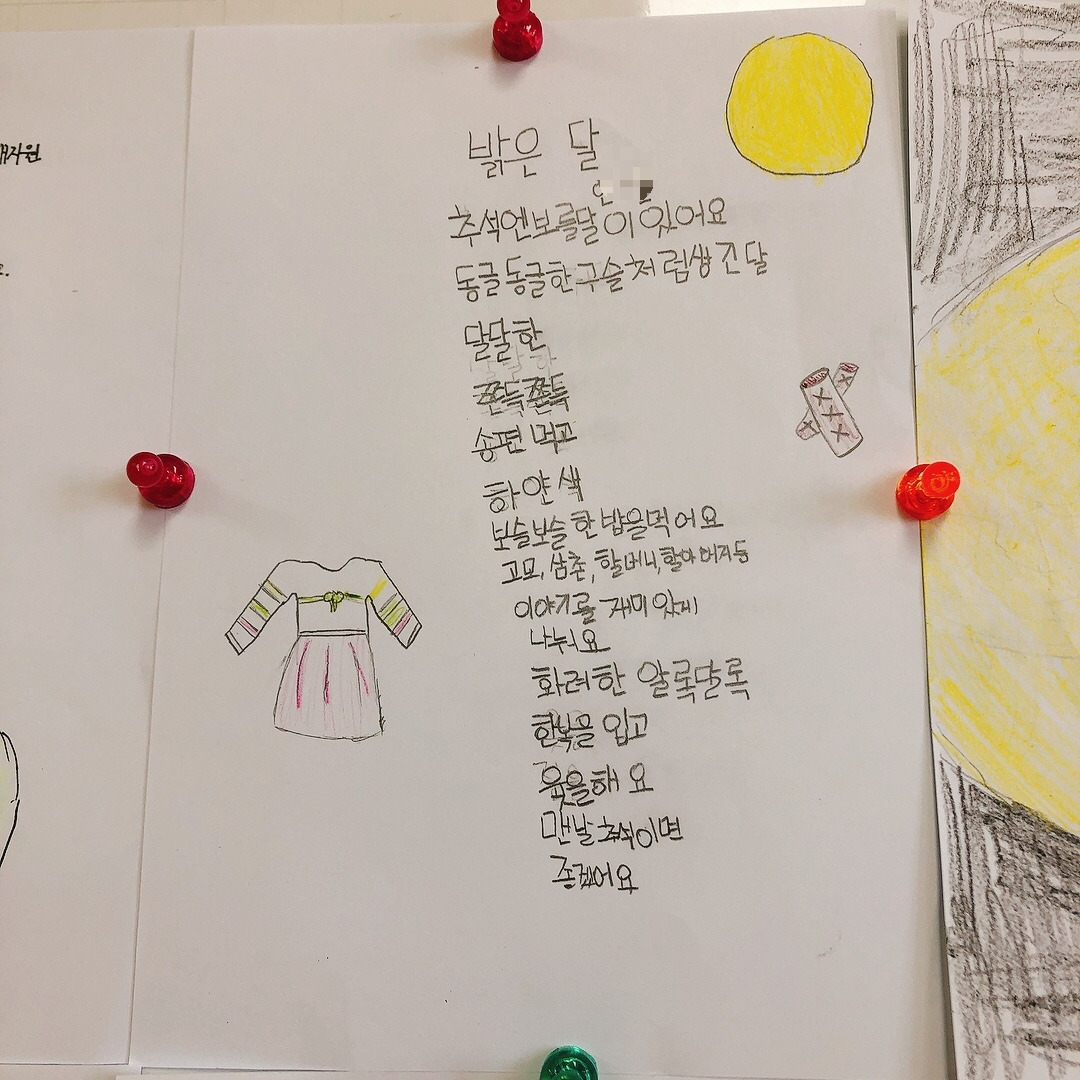 밝은 달
추석엔보름달이있어요
동글동글한구슬처럼생긴달
달달한
쫀득쫀득
송편 먹고
하얀색
보슬보슬한 밥을먹어요
고모, 삼촌, 할머니, 할아버지등
이야기를 재미있게
나눠요
화려한 알록달록
한복을 입고
윷을해요
맨날 추석이면
좋겠어요